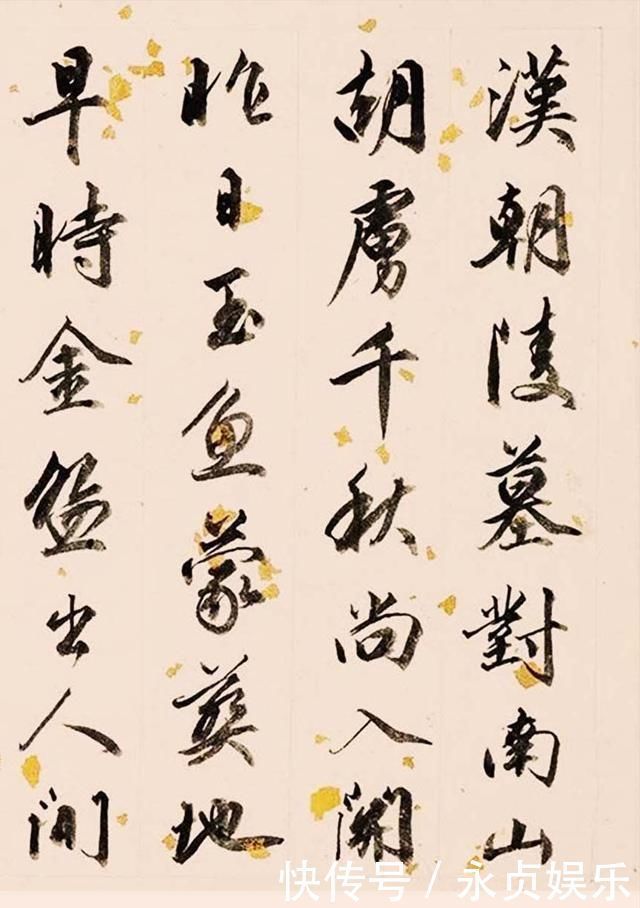 漢朝陵墓對南山
胡虜千秋尚入關
昨日玉魚蒙葬地
早時金盌出人間
快传号 / 永贞娱乐